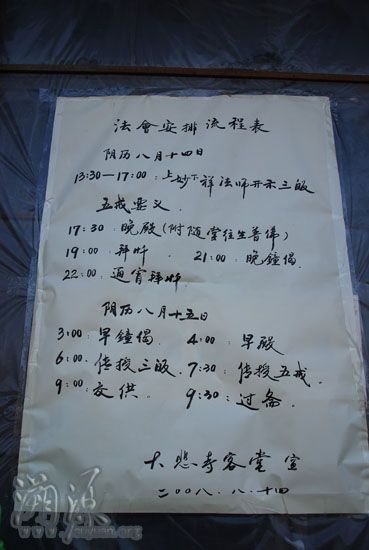 法會安排流程表
阴历八月十四日
13:30—17:00:上妙下祥法师开示三皈
五戒要义.
17:30:晚殿(附随堂往生普佛)
19:00 拜忏 21:00:晚鐘偈.
22:00:通宵拜忏.
阴历八月十五日
3:00:早鐘偈 4:00:早殿
6:00:传授三皈. 7:30:传授五戒.
9:00:交供. 9:30:过斋.
大悲寺客堂宣
二00八.八.十四
溯源